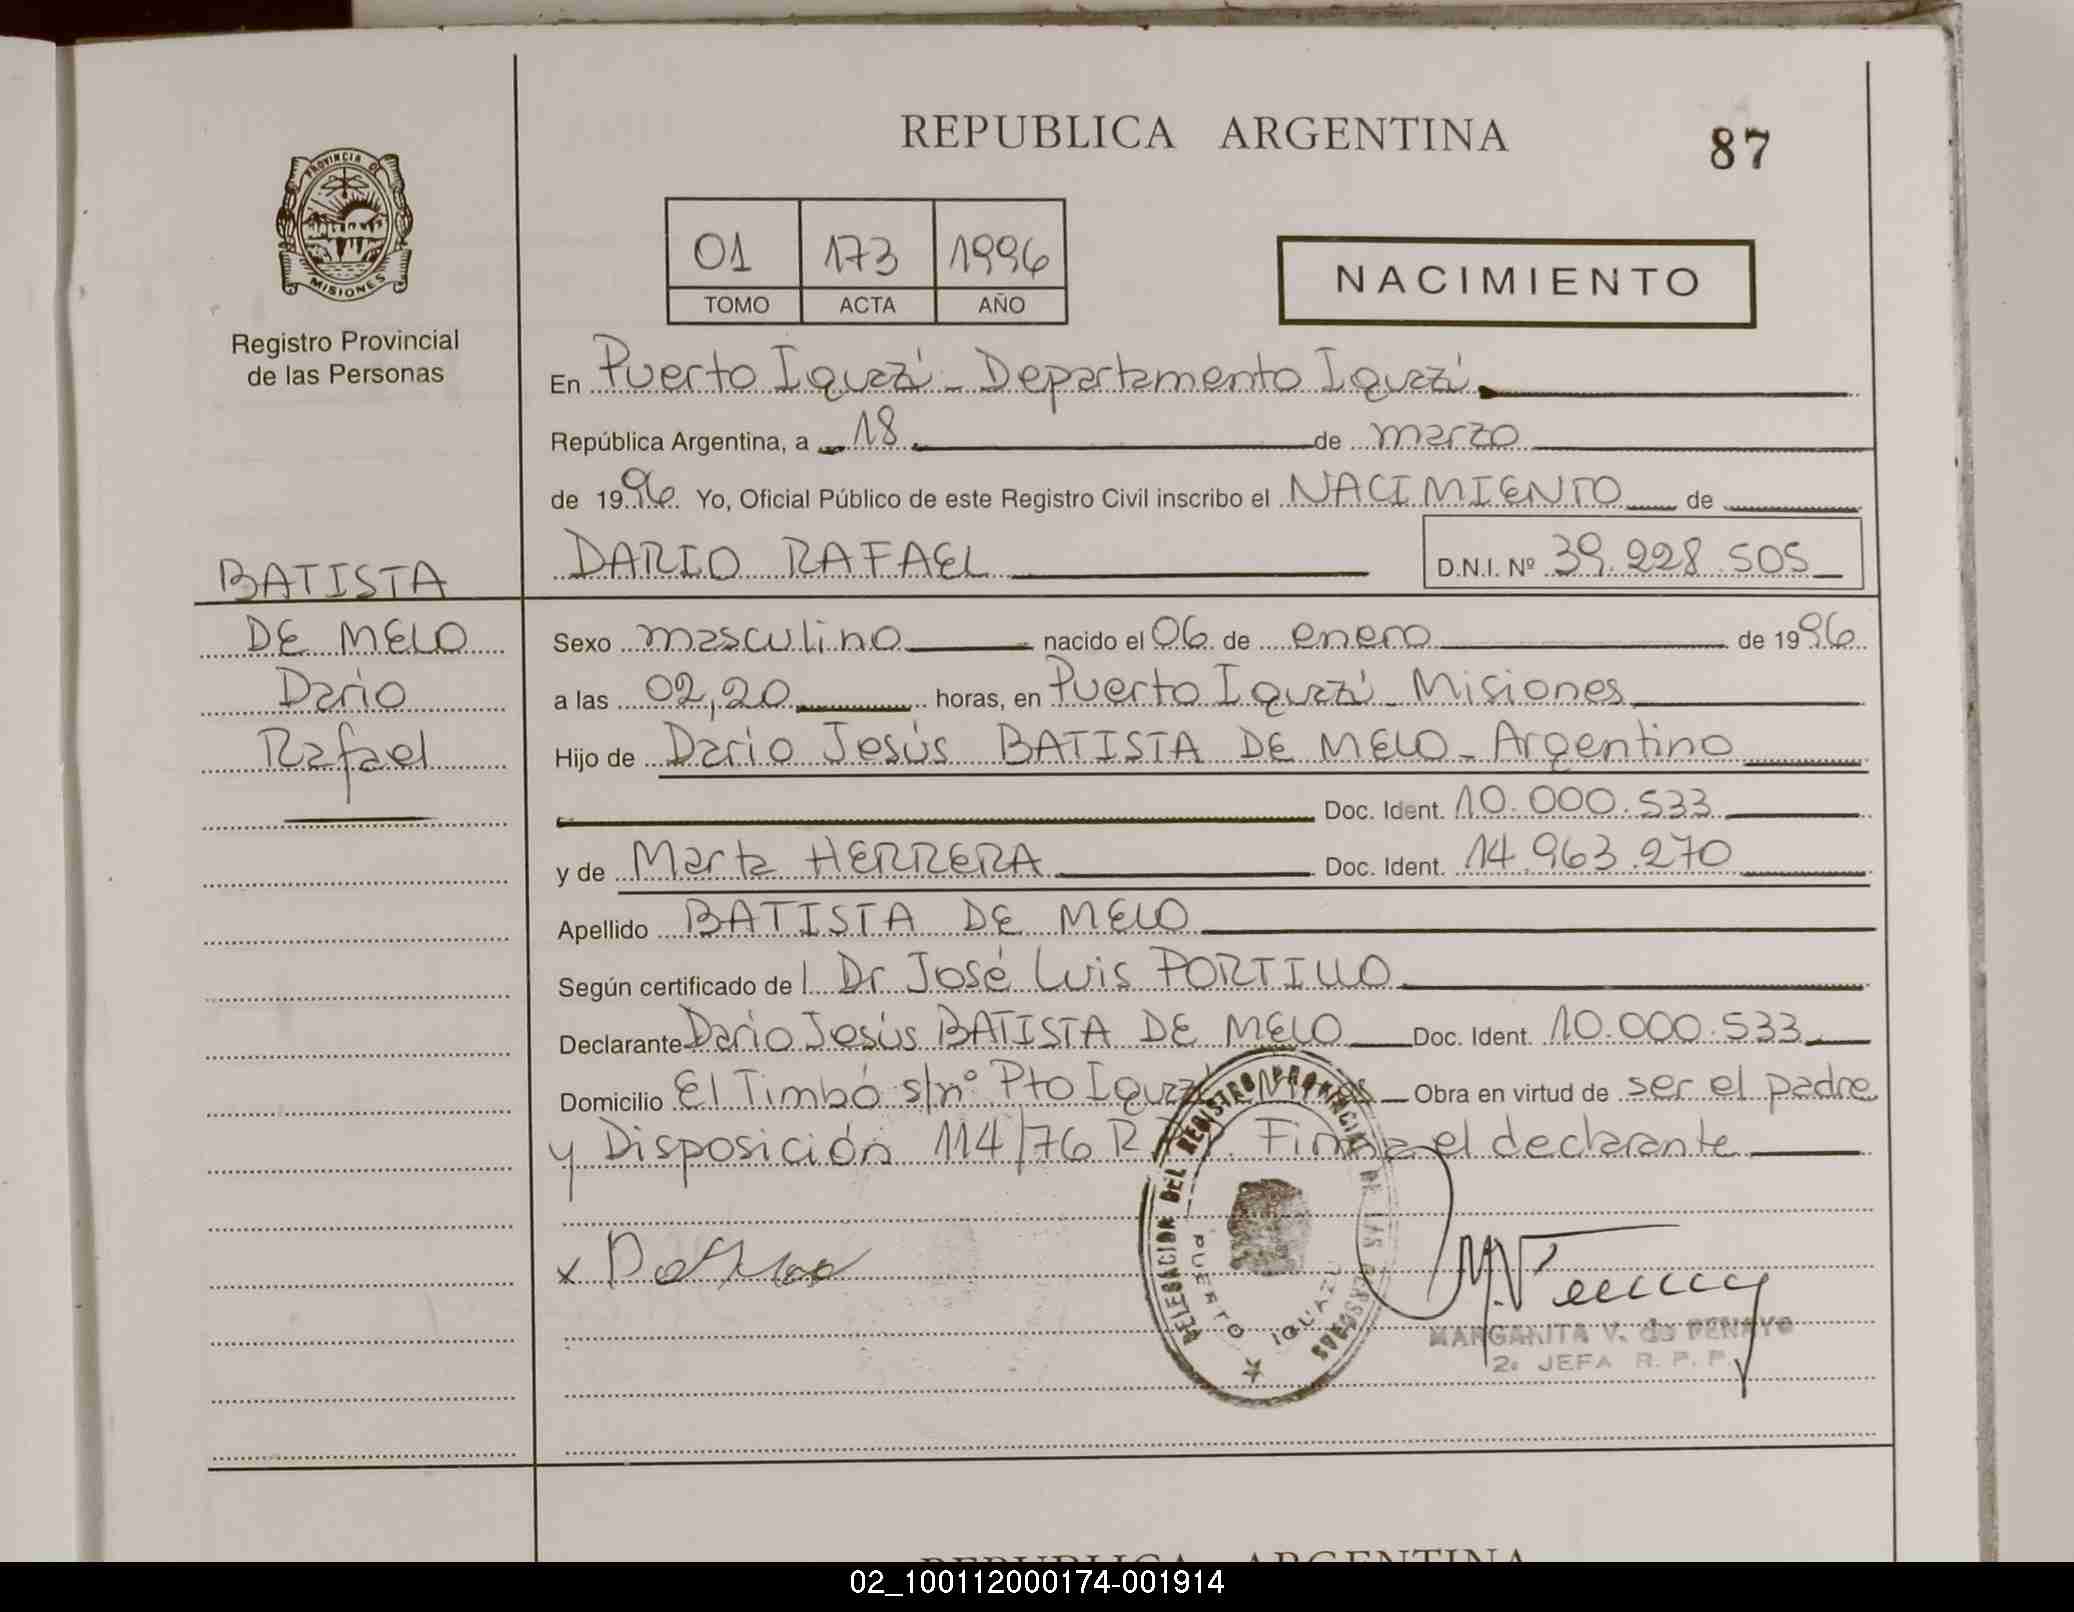 REPUBLICA ARGENTINA
87
PROVINCIA DE
MISIONES
Registro Provincial
de las Personas
01 173 1996
TOMO ACTA AÑO
NACIMIENTO
En Puerto Iguazú - Departamento Iguazú
República Argentina, a 18 de marzo
de 1996 Yo, Oficial Público de este Registro Civil inscribo el NACIMIENTO de
DARIO RAFAEL D.N.I. Nº 39.228.505
BATISTA
DE MELO
Dario
Rafael
Sexo masculino nacido el 06 de enero de 1996
a las 02,20 horas, en Puerto Iguazú - Misiones
Hijo de Dario Jesús BATISTA DE MELO - Argentino
Doc. Ident. 10.000.533
y de Marta HERRERA Doc. Ident. 14.963.270
Apellido BATISTA DE MELO
Según certificado de l Dr José Luis PORTILLO
Declarante Dario Jesús BATISTA DE MELO Doc. Ident. 10.000.533
Domicilio El Timbó s/nº Pto Iguazú Obra en virtud de ser el padre
y Disposición 114/76 R. Firma el declarante
x
DELEGACION DEL REGISTRO PROVINCIAL DE LAS PERSONAS
PUERTO IGUAZU
MARGARITA V. de PENAYO
2º JEFA R. P. P.
REPUBLICA ARGENTINA
02_100112000174-001914